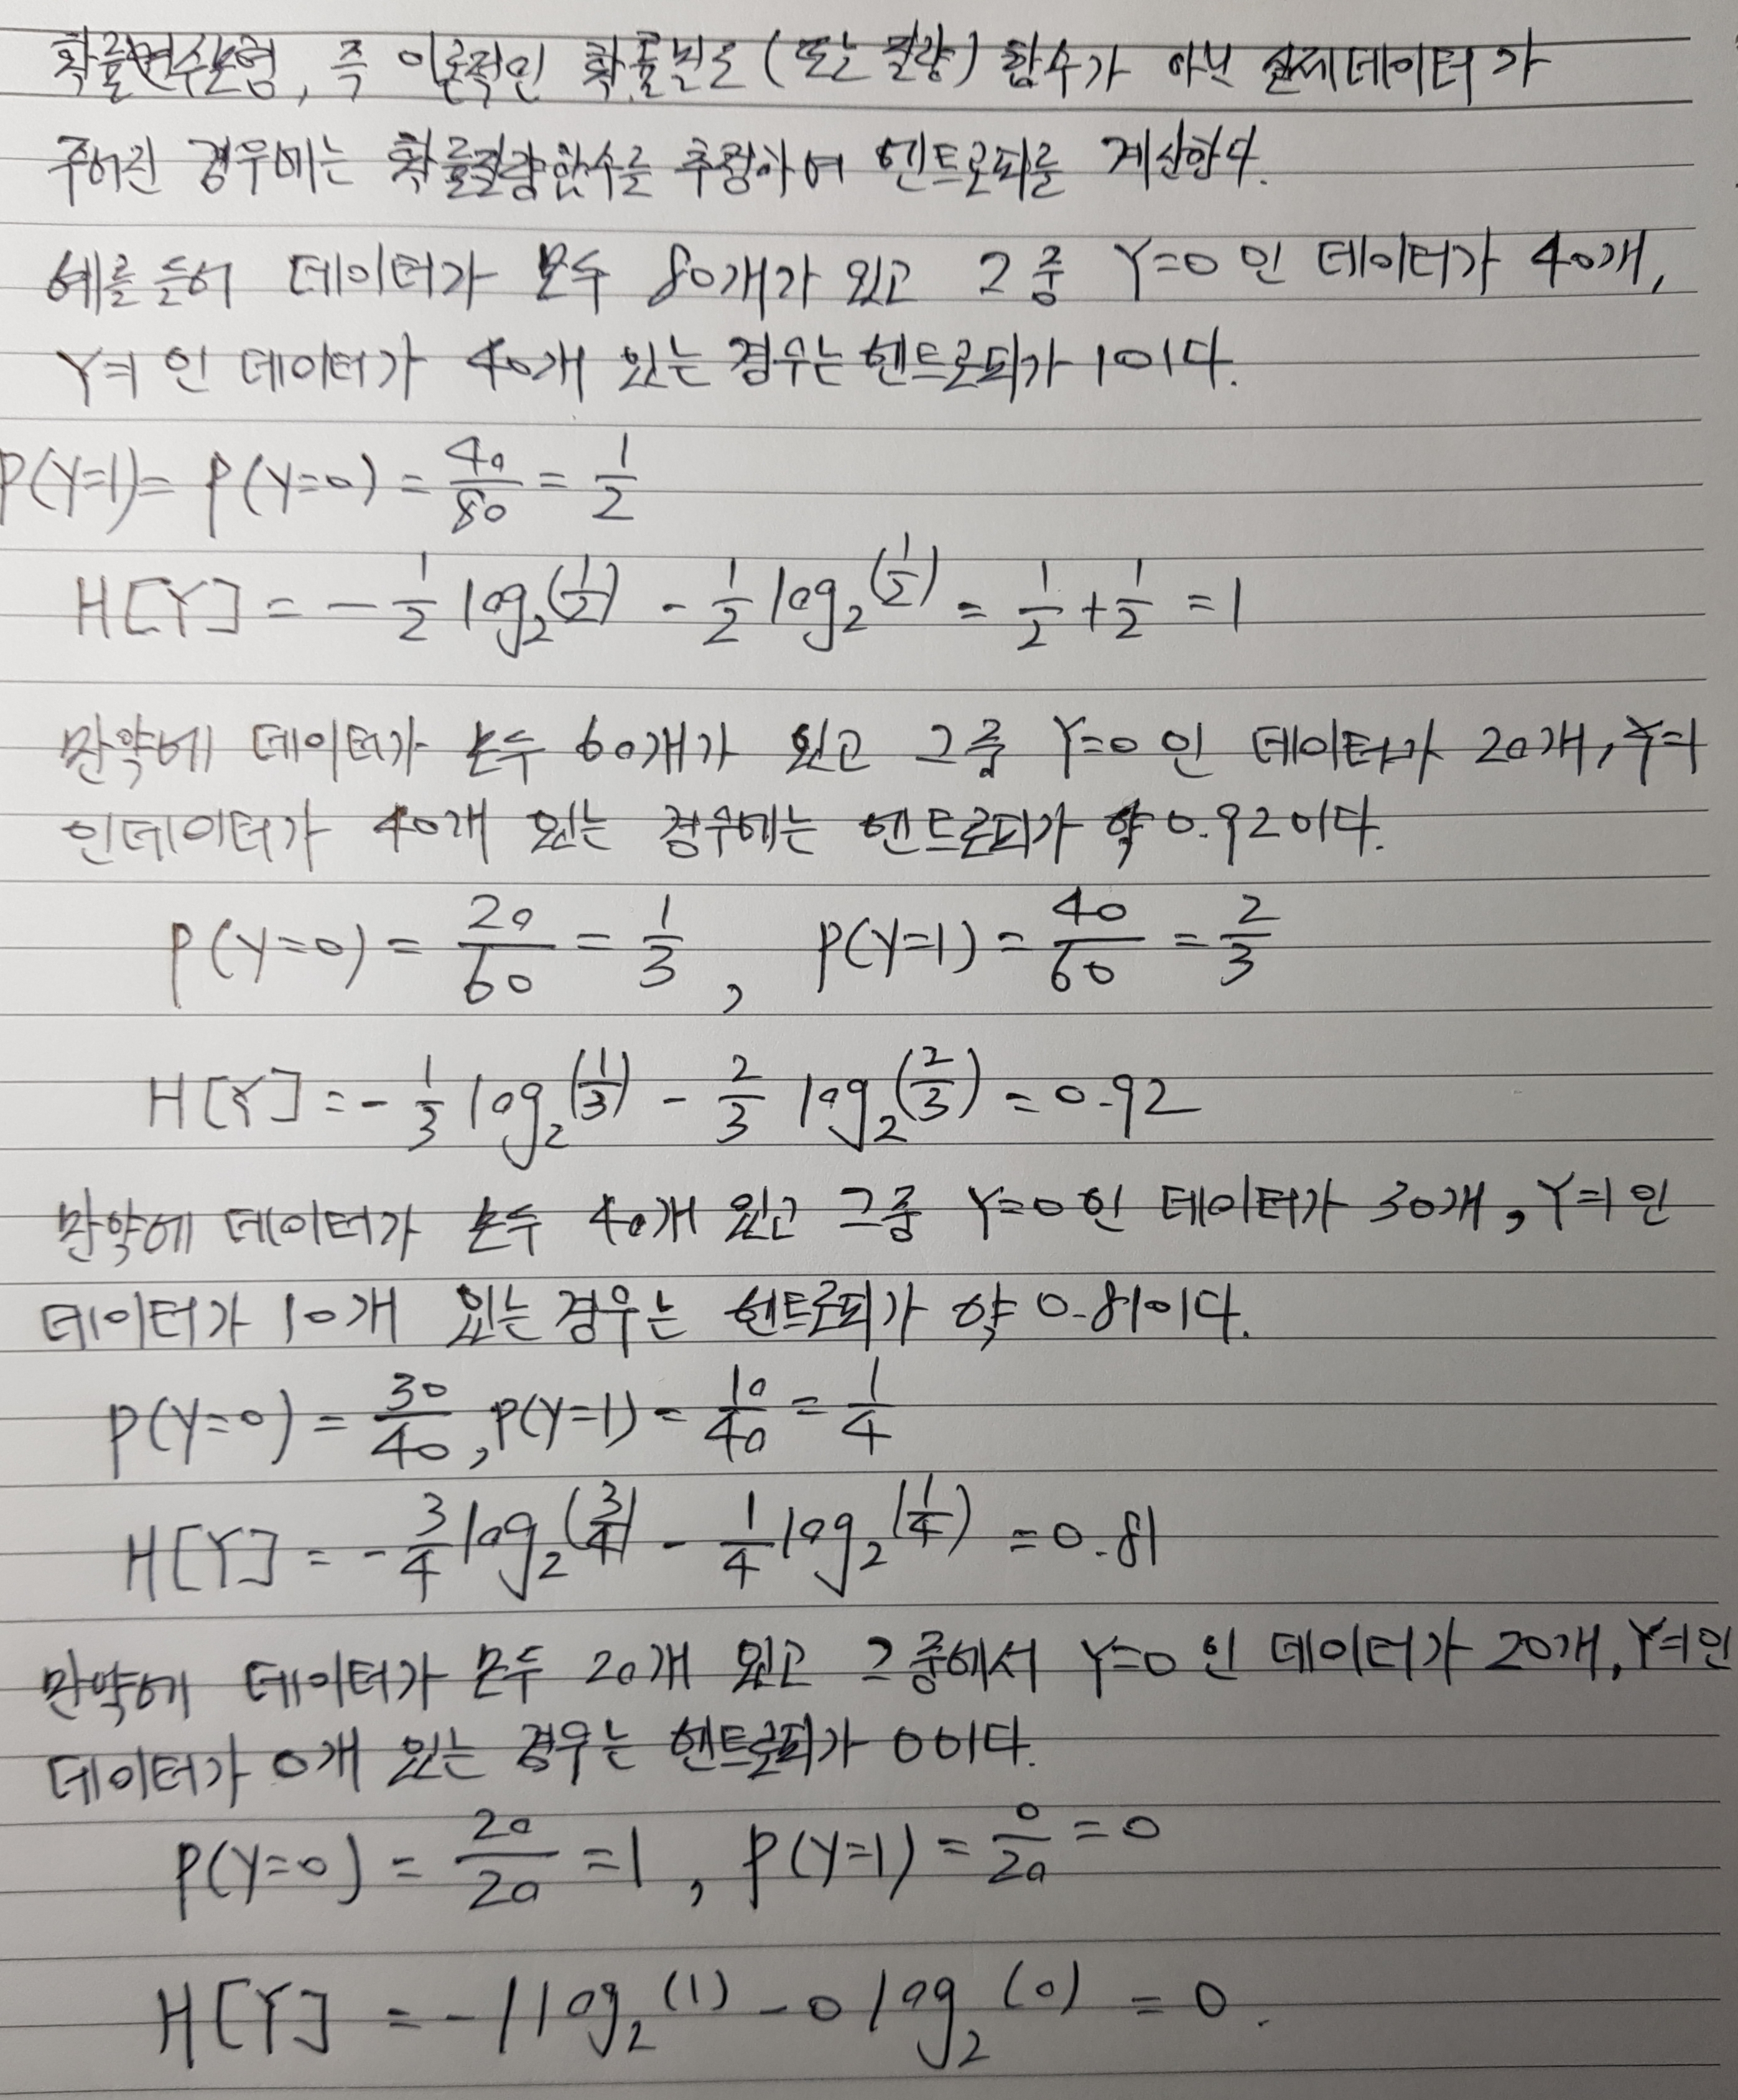 확률변수모형, 즉 이론적인 확률밀도(또는 질량)함수가 아닌 실제데이터가
주어진 경우에는 확률질량함수를 추정하여 엔트로피를 계산한다.
예를 들어 데이터가 모두 80개가 있고 그 중 Y=0 인 데이터가 40개,
Y=1 인 데이터가 40개 있는 경우는 엔트로피가 1이다.
P(Y=1)= P(Y=0) = 40/80 = 1/2
H[Y] = -1/2 log₂(1/2) - 1/2 log₂(1/2) = 1/2 + 1/2 = 1
만약에 데이터가 모두 60개가 있고 그중 Y=0 인 데이터가 20개, Y=1
인데이터가 40개 있는 경우에는 엔트로피가 약 0.92이다.
P(Y=0) = 20/60 = 1/3 , P(Y=1) = 40/60 = 2/3
H[Y] = -1/3 log₂(1/3) - 2/3 log₂(2/3) = 0.92
만약에 데이터가 모두 40개 있고 그중 Y=0 인 데이터가 30개, Y=1 인
데이터가 10개 있는 경우는 엔트로피가 약 0.81이다.
P(Y=0) = 30/40, P(Y=1) = 10/40 = 1/4
H[Y] = -3/4 log₂(3/4) - 1/4 log₂(1/4) = 0.81
만약에 데이터가 모두 20개 있고 그중에서 Y=0 인 데이터가 20개, Y=1인
데이터가 0개 있는 경우는 엔트로피가 0이다.
P(Y=0) = 20/20 = 1 , P(Y=1) = 0/20 = 0
H[Y] = -1 log₂(1) - 0 log₂(0) = 0.